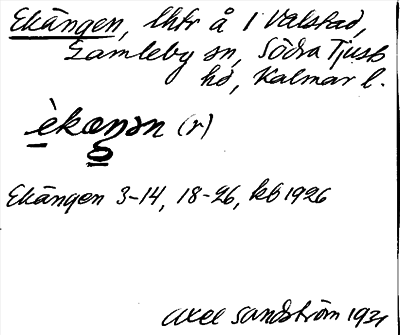 Ekängen, lhtr å 1 Valstad,
Gamleby sn, Södra Tjust
hd, Kalmar l.
(r)
Ekängen 3-14, 18-26, kb 1926
Axel Sandström 1931